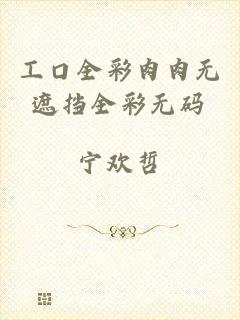 工口全彩肉肉无
遮挡全彩无码
宁欢哲